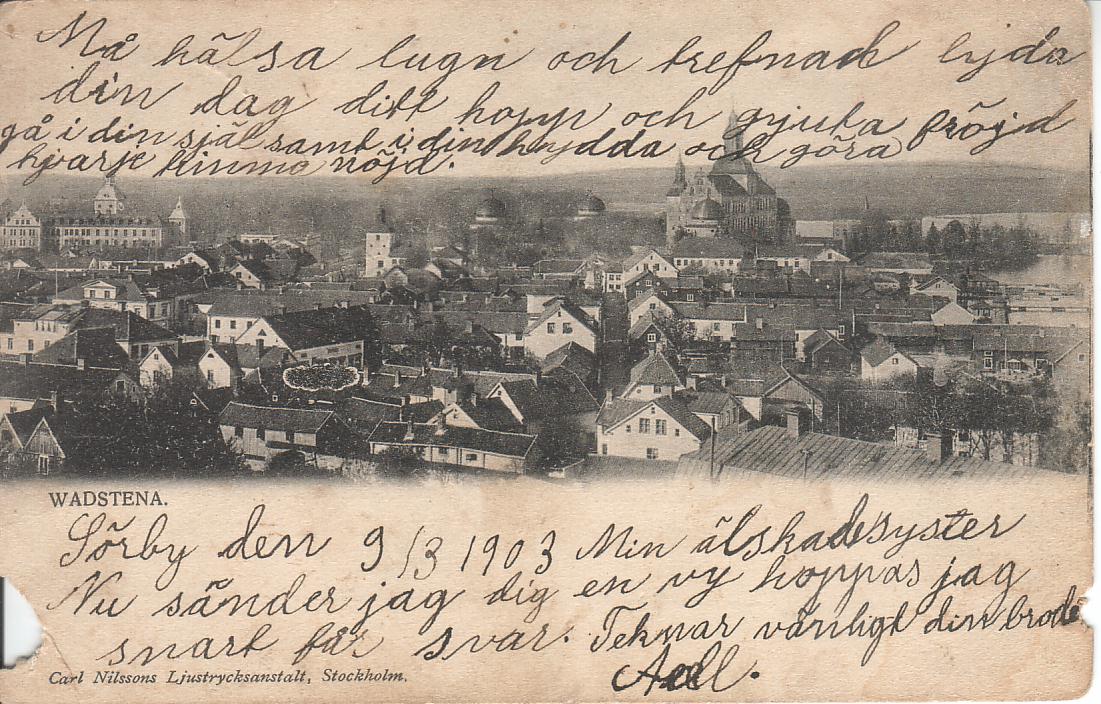 Må hälsa lugn och trefnad lyda
din dag ditt hopp och gjuta fröjd
gå i din själ samt i din hydda och göra
hvarje timma nöjd.
WADSTENA.
Sörby den 9/3 1903 Min älskadesyster
Nu sänder jag dig en vy hoppas jag
snart får svar. Teknar vänligt din brode
Carl Nilssons Ljustrycksanstalt, Stockholm.